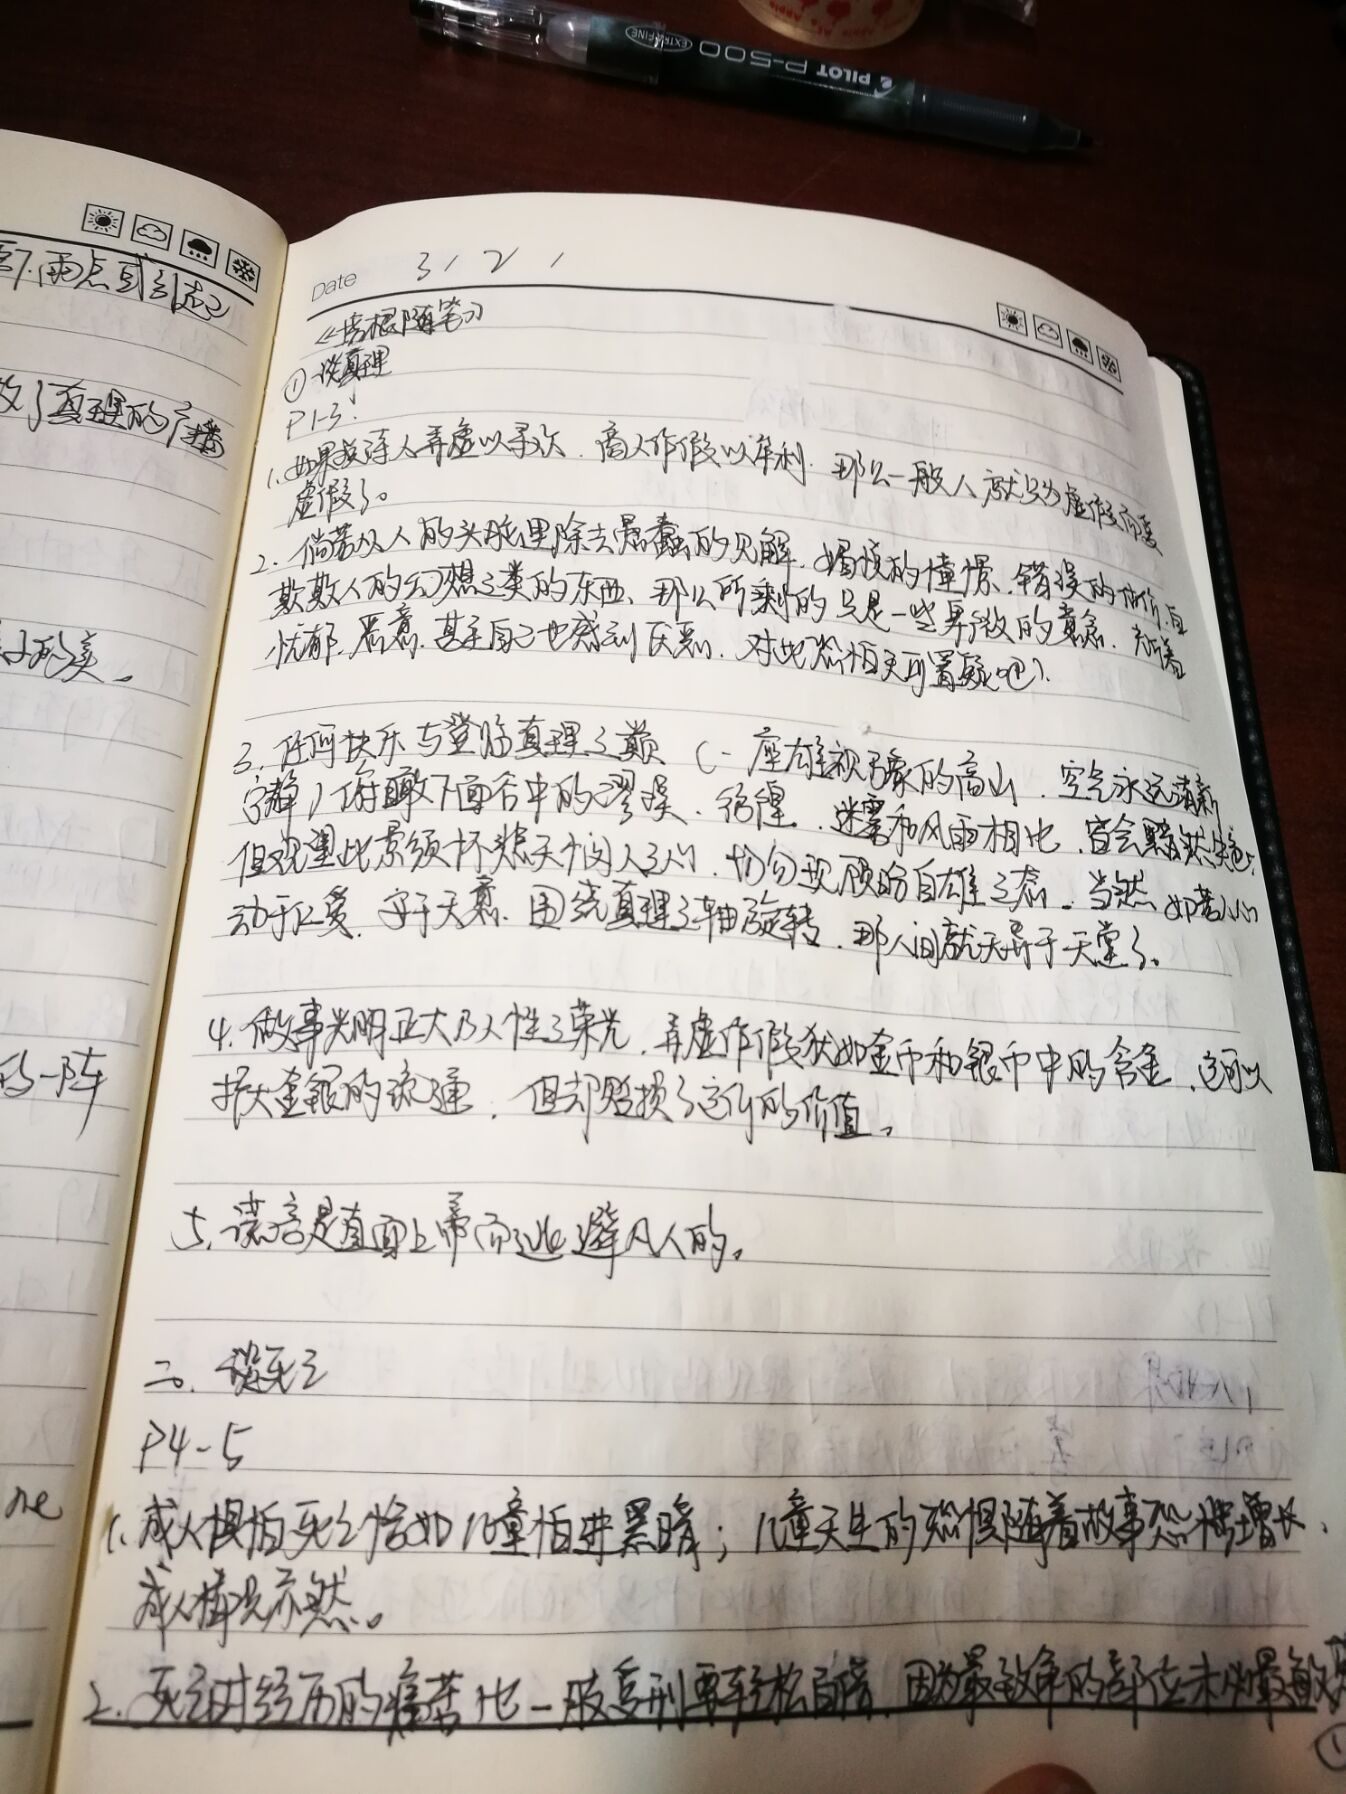 言7.雨点或引起
放了真理的广播
子的美。
的一阵
ne
PILOT P-500
EXTRA FINE
Date 3 / 2 /
《培根随笔》
① 谈真理
P1-3:
1.如果说诗人弄虚以寻欢、商人作假以牟利、那么一般人就只为虚假而爱
虚假了。
2.倘若从人的头脑里除去愚蠢的见解、媚悦的憧憬、错误的估价、自
欺欺人的幻想之类的东西、那么所剩的只是一些卑微的意念、充满着
忧郁、恶意、甚至自己也感到厌恶、对此恐怕无可置疑吧).
3.任何快乐与登临真理之巅(一座雄视万象的高山、空气永远清新
宁静)俯瞰下面谷中的谬误、彷徨、迷雾和风雨相比、皆会黯然失色;
但观望此景须怀悲天悯人之心、切勿现顾盼自雄之态。当然、如若人心
动于仁爱、安于天意、围绕真理之轴旋转、那人间就无异于天堂了。
4.做事光明正大乃人性之荣光、弄虚作假犹如金币和银币中的合金、这可以
扩大金银的流通、但却贬损了它们的价值。
5.谎言是直面上帝而逃避凡人的。
二.谈死亡
P4-5
1.成人惧怕死亡恰如儿童怕进黑暗;儿童天生的恐惧随着故事恐怖增长、
成人情况亦然。
2.死亡时经历的痛苦比一般受刑要轻松 因为最致命的部位未必最敏感
①